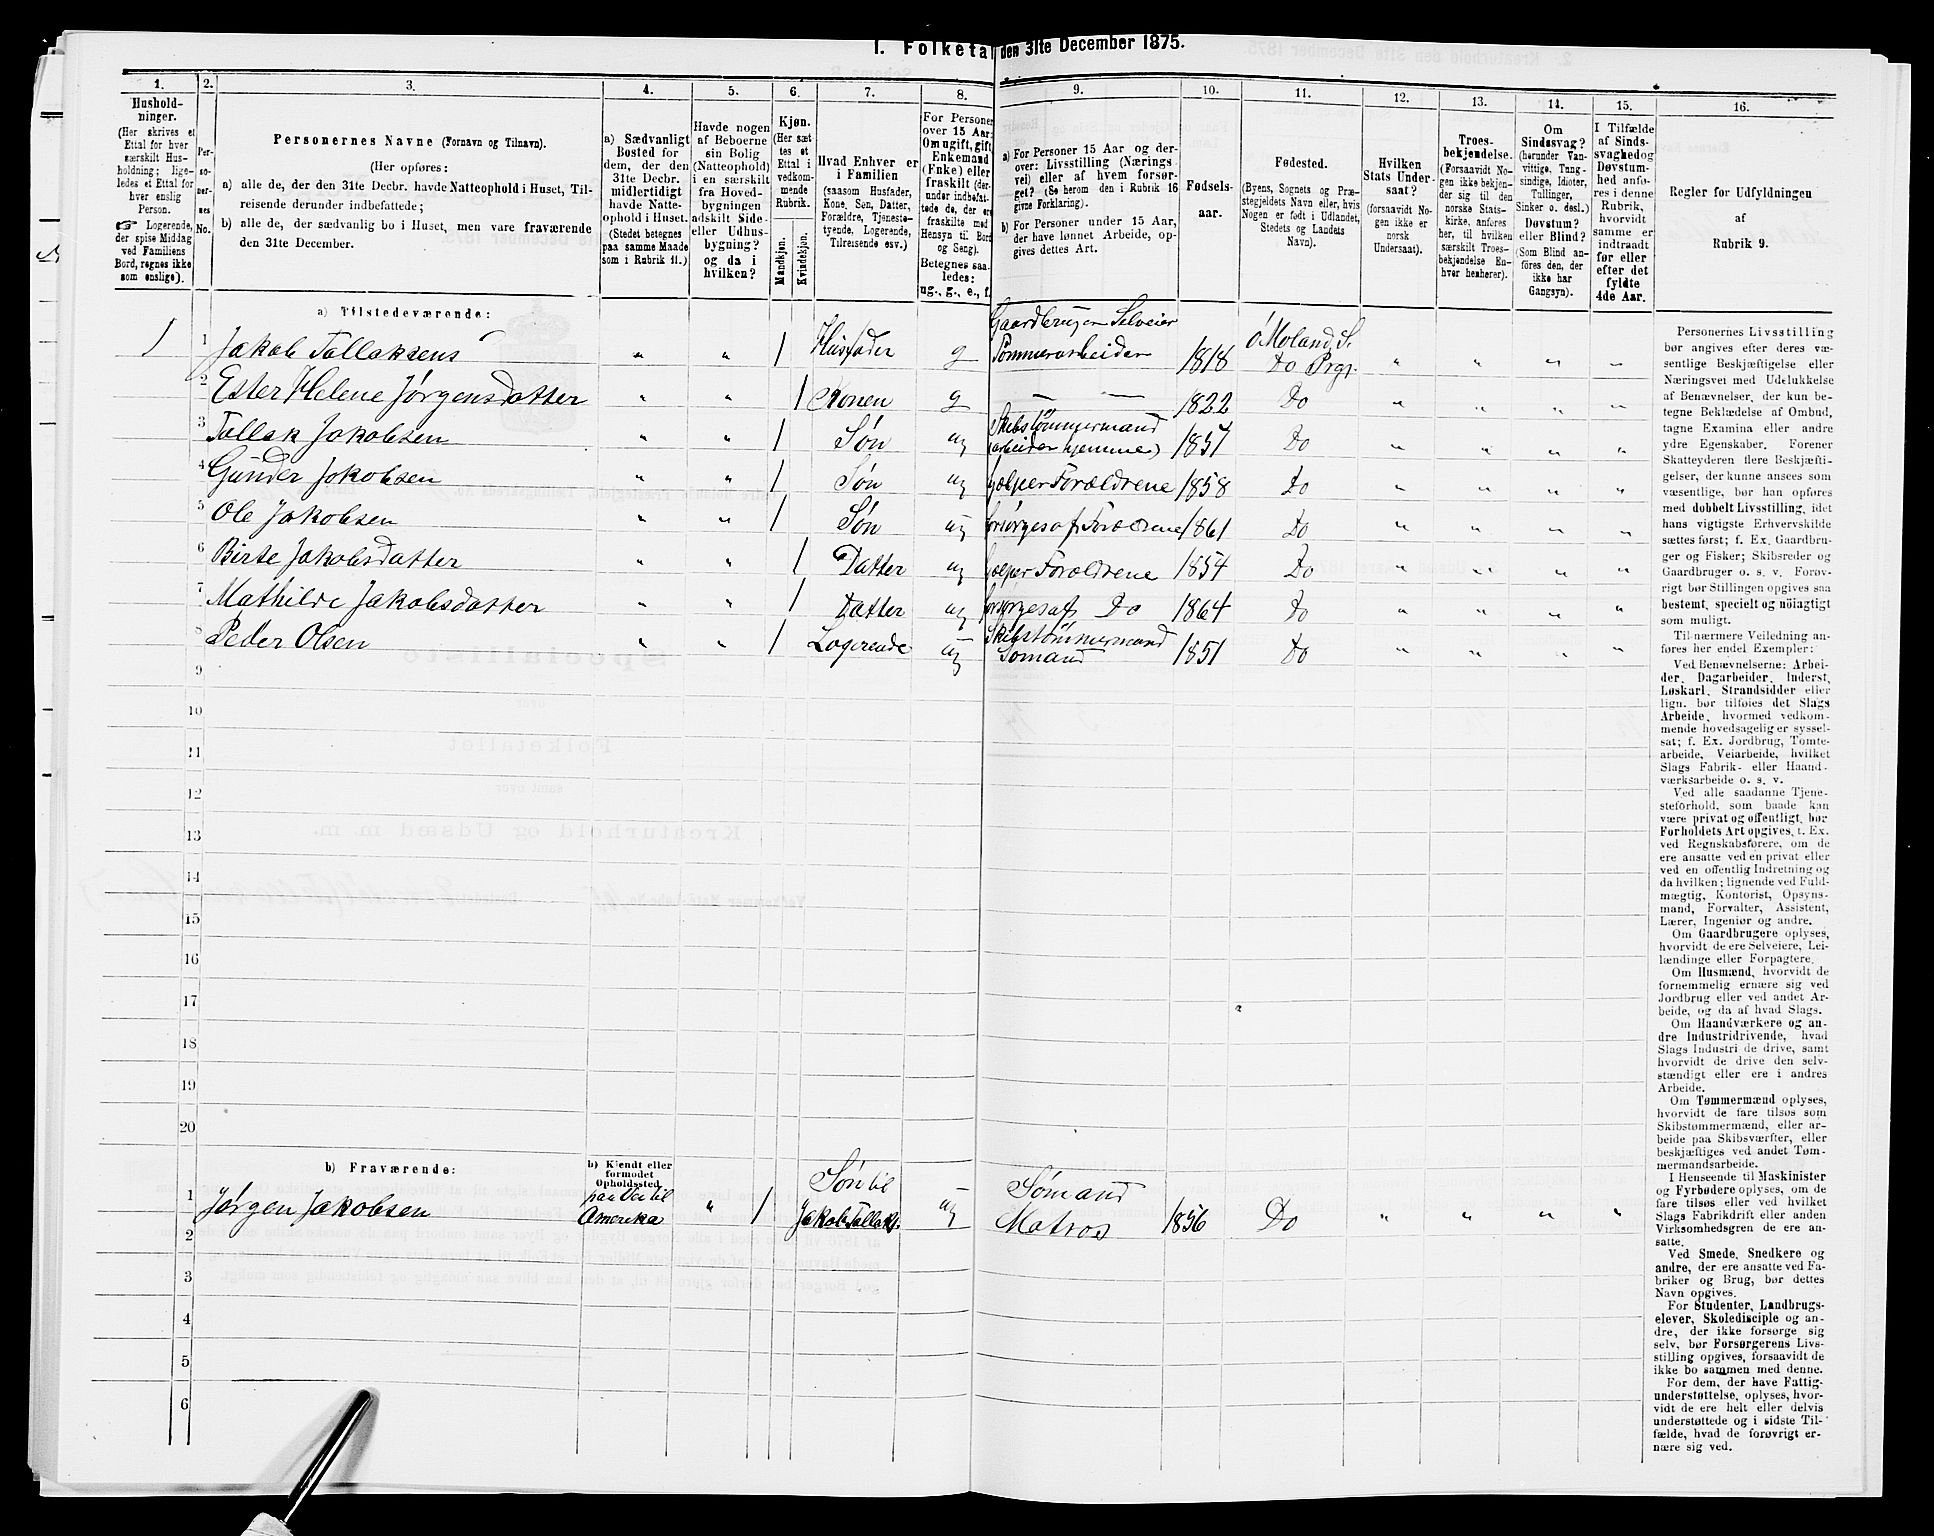 1. Folketal den 31te December 1875.
1. 2. 3. 4. 5. 6. 7. 8. 9. 10. 11. 12. 13. 14. 15. 16.
Hushold-
ninger.
(Her skrives et
Ettal for hver
særskilt Hus-
holdning; lige-
ledes et Ettal for
hver enslig
Person.
☞ Logerende,
der spise Middag
ved Familiens
Bord, regnes ikke
som enslige).
Per-
so-
ner-
nes
No.
Personernes Navne (Fornavn og Tilnavn).
(Her opføres:
a) alle de, der den 31te Decbr. havde Natteophold i Huset, Til-
reisende derunder indbefattede;
b) alle de, der sædvanlig bo i Huset, men vare fraværende
den 31te December.
a) Sædvanligt
Bosted for
dem, der den
31te Decbr.
midlertidigt
havde Natte-
ophold i Huset.
(Stedet betegnes
paa samme Maade
som i Rubrik 11.)
Havde nogen
af Beboerne
sin Bolig
(Natteophold)
i en særskilt
fra Hoved-
bygningen
adskilt Side-
eller Udhus-
bygning?
og da i
hvilken?
Kjøn.
(Her sæt
tes et
Ettal i
vedkom-
mende
Rubrik.
Mandkjøn.
Kvindekjøn.
Hvad Enhver er
i Familien
(saasom Husfader,
Kone, Søn, Datter,
Forældre, Tjeneste-
tyende, Logerende,
Tilreisende osv.)
For Personer
over 15 Aar:
Om ugift, gift,
Enkemand
(Enke) eller
fraskilt (der-
under indbefat-
tede de, der ere
fraskilte med
Hensyn til Bord
og Seng).
Betegnes saa-
ledes:
ug., g., e., f.
a) For Personer 15 Aar og der-
over: Livsstilling (Nærings
vei) eller af hvem forsør-
get? (Se herom den i Rubrik 16
givne Forklaring).
b) For Personer under 15 Aar,
der have lønnet Arbeide, op-
gives dettes Art.
Fødsels-
aar.
Fødested.
(Byens, Sognets og Præ-
stegjeldets Navn eller, hvis
Nogen er født i Udlandet,
Stedets og Landets
Navn).
Hvilken
Stats Under-
saat?
(forsaavidt No-
gen ikke er
norsk
Undersaat).
Troes-
bekjendelse.
(Forsaavidt No-
gen ikke bekjen-
der sig til den
norske Stats-
kirke, anføres
her, til hvilken
særskilt Troes-
bekjendelse En-
hver henhører).
Om
Sindssvag?
(herunder Van-
vittige, Tung-
sindige, Idioter,
Tullinger,
Sinker o. desl.)
Døvstum?
eller Blind?
(Som Blind an-
føres den, der
ikke har
Gangsyn).
I Tilfælde
af Sinds-
svaghed og
Døvstum-
hed anfø-
res i denne
Rubrik,
hvorvidt
samme er
indtraadt
før eller
efter det
fyldte
4de Aar.
Regler for Udfyldningen
af
Rubrik 9.
a) Tilstedeværende:
Gaardbruger Selveier ö. Moland, S.
1 1 Jakob Tallaksens " " 1 Husfader g Tømmerarbeider 1818 Do Prgj. " " " "
2 Ester Helene Jørgensdatter " " 1 Konen g — — 1822 Do " " " "
Skibstømmermand
3 Tallak Jakobsen " " 1 Søn ug (arbeider hjemme) 1857 Do " " " "
4 Gunder Jakobsen " " 1 Søn ug hjælper Forældrene 1858 Do " " " "
5 Ole Jakobsen " " 1 Søn ug forsørges af Forældrene 1861 Do " " " "
6 Birte Jakobsdatter " " 1 Datter ug hjælper Forældrene 1854 Do " " " "
7 Mathilde Jakobsdatter " " 1 Datter ug forsørges af Do 1864 Do " " " "
Skibstømmermand
8 Peder Olsen " " 1 Logerende ug Sømand 1851 Do " " " "
9
10
11
12
13
14
15
16
17
18
19
20
b) Fraværende:
b) Kjendt eller
formodet
Opholdssted.
paa Vei til Søn til Sømand
1 Jørgen Jakobsen Amerika " 1 Jakob Tallaks. ug Matros 1856 Do " " " "
2
3
4
5
6
Personernes Livsstilling
bør angives efter deres væ-
sentlige Beskjæftigelse eller
Næringsvei med Udelukkelse
af Benævnelser, der kun be-
tegne Beklædelse af Ombud,
tagne Examina eller andre
ydre Egenskaber. Forener
Skatteyderen flere Beskjæfti-
gelser, der kunne ansees som
væsentlige, bør han opføres
med dobbelt Livsstilling, idet
hans vigtigste Erhvervskilde
sættes først; f. Ex. Gaardbru-
ger og Fisker; Skibsreder og
Gaardbruger o. s. v. Forøv-
rigt bør Stillingen opgives saa
bestemt, specielt og nöiagtigt
som muligt.
Til nærmere Veiledning an-
føres her endel Exempler:
Ved Benævnelserne: Arbei-
der, Dagarbeider, Inderst,
Løskarl, Strandsidder eller
lign. bør tilføies det Slags
Arbeide, hvormed vedkom-
mende hovedsagelig er syssel-
sat; f. Ex. Jordbrug, Tomte-
arbeide, Veiarbeide, hvilket
Slags Fabrik- eller Haand-
værksarbeide o. s. v.
Ved alle saadanne Tjene-
steforhold, som baade kan
være privat og offentligt, bør
Forholdets Art opgives, t. Ex.
ved Regnskabsførere, om de
ere ansatte ved en privat eller
ved en offentlig Indretning og
da hvilken; lignende ved Fuld-
mægtig, Kontorist, Opsyns-
mand, Forvalter, Assistent,
Lærer, Ingeniør og andre.
Om Gaardbrugere oplyses,
hvorvidt de ere Selveiere, Lei-
lændinge eller Forpagtere.
Om Husmænd, hvorvidt de
fornemmelig ernære sig ved
Jordbrug eller ved andet Ar-
beide, og da af hvad Slags.
Om Haandværkere og an-
dre Industridrivende, hvad
Slags Industri de drive, samt
hvorvidt de drive den selv-
stændigt eller ere i andres
Arbeide.
Om Tømmermænd oplyses,
hvorvidt de fare tilsøs som
Skibstømmermænd, eller ar-
beide paa Skibsværfter, eller
beskjæftiges ved andet Tøm-
mermandsarbeide.
I Henseende til Maskinister
og Fyrbødere oplyses, om de
fare tilsøs eller ved hvilket
Slags Fabrikdrift eller anden
Virksomhedsgren de ere an-
satte.
Ved Smede, Snedkere og
andre, der ere ansatte ved Fa-
briker og Brug, bør dettes
Navn opgives.
For Studenter, Landbrugs-
elever, Skoledisciple og an-
dre, der ikke forsørge sig
selv, bør Forsørgerens Livs-
stilling opgives, forsaavidt de
ikke bo sammen med denne.
For dem, der have Fattig-
understøttelse, oplyses, hvor-
vidt de ere helt eller delvis
understøttede og i sidste Til-
fælde, hvad de forøvrigt er-
nære sig ved.